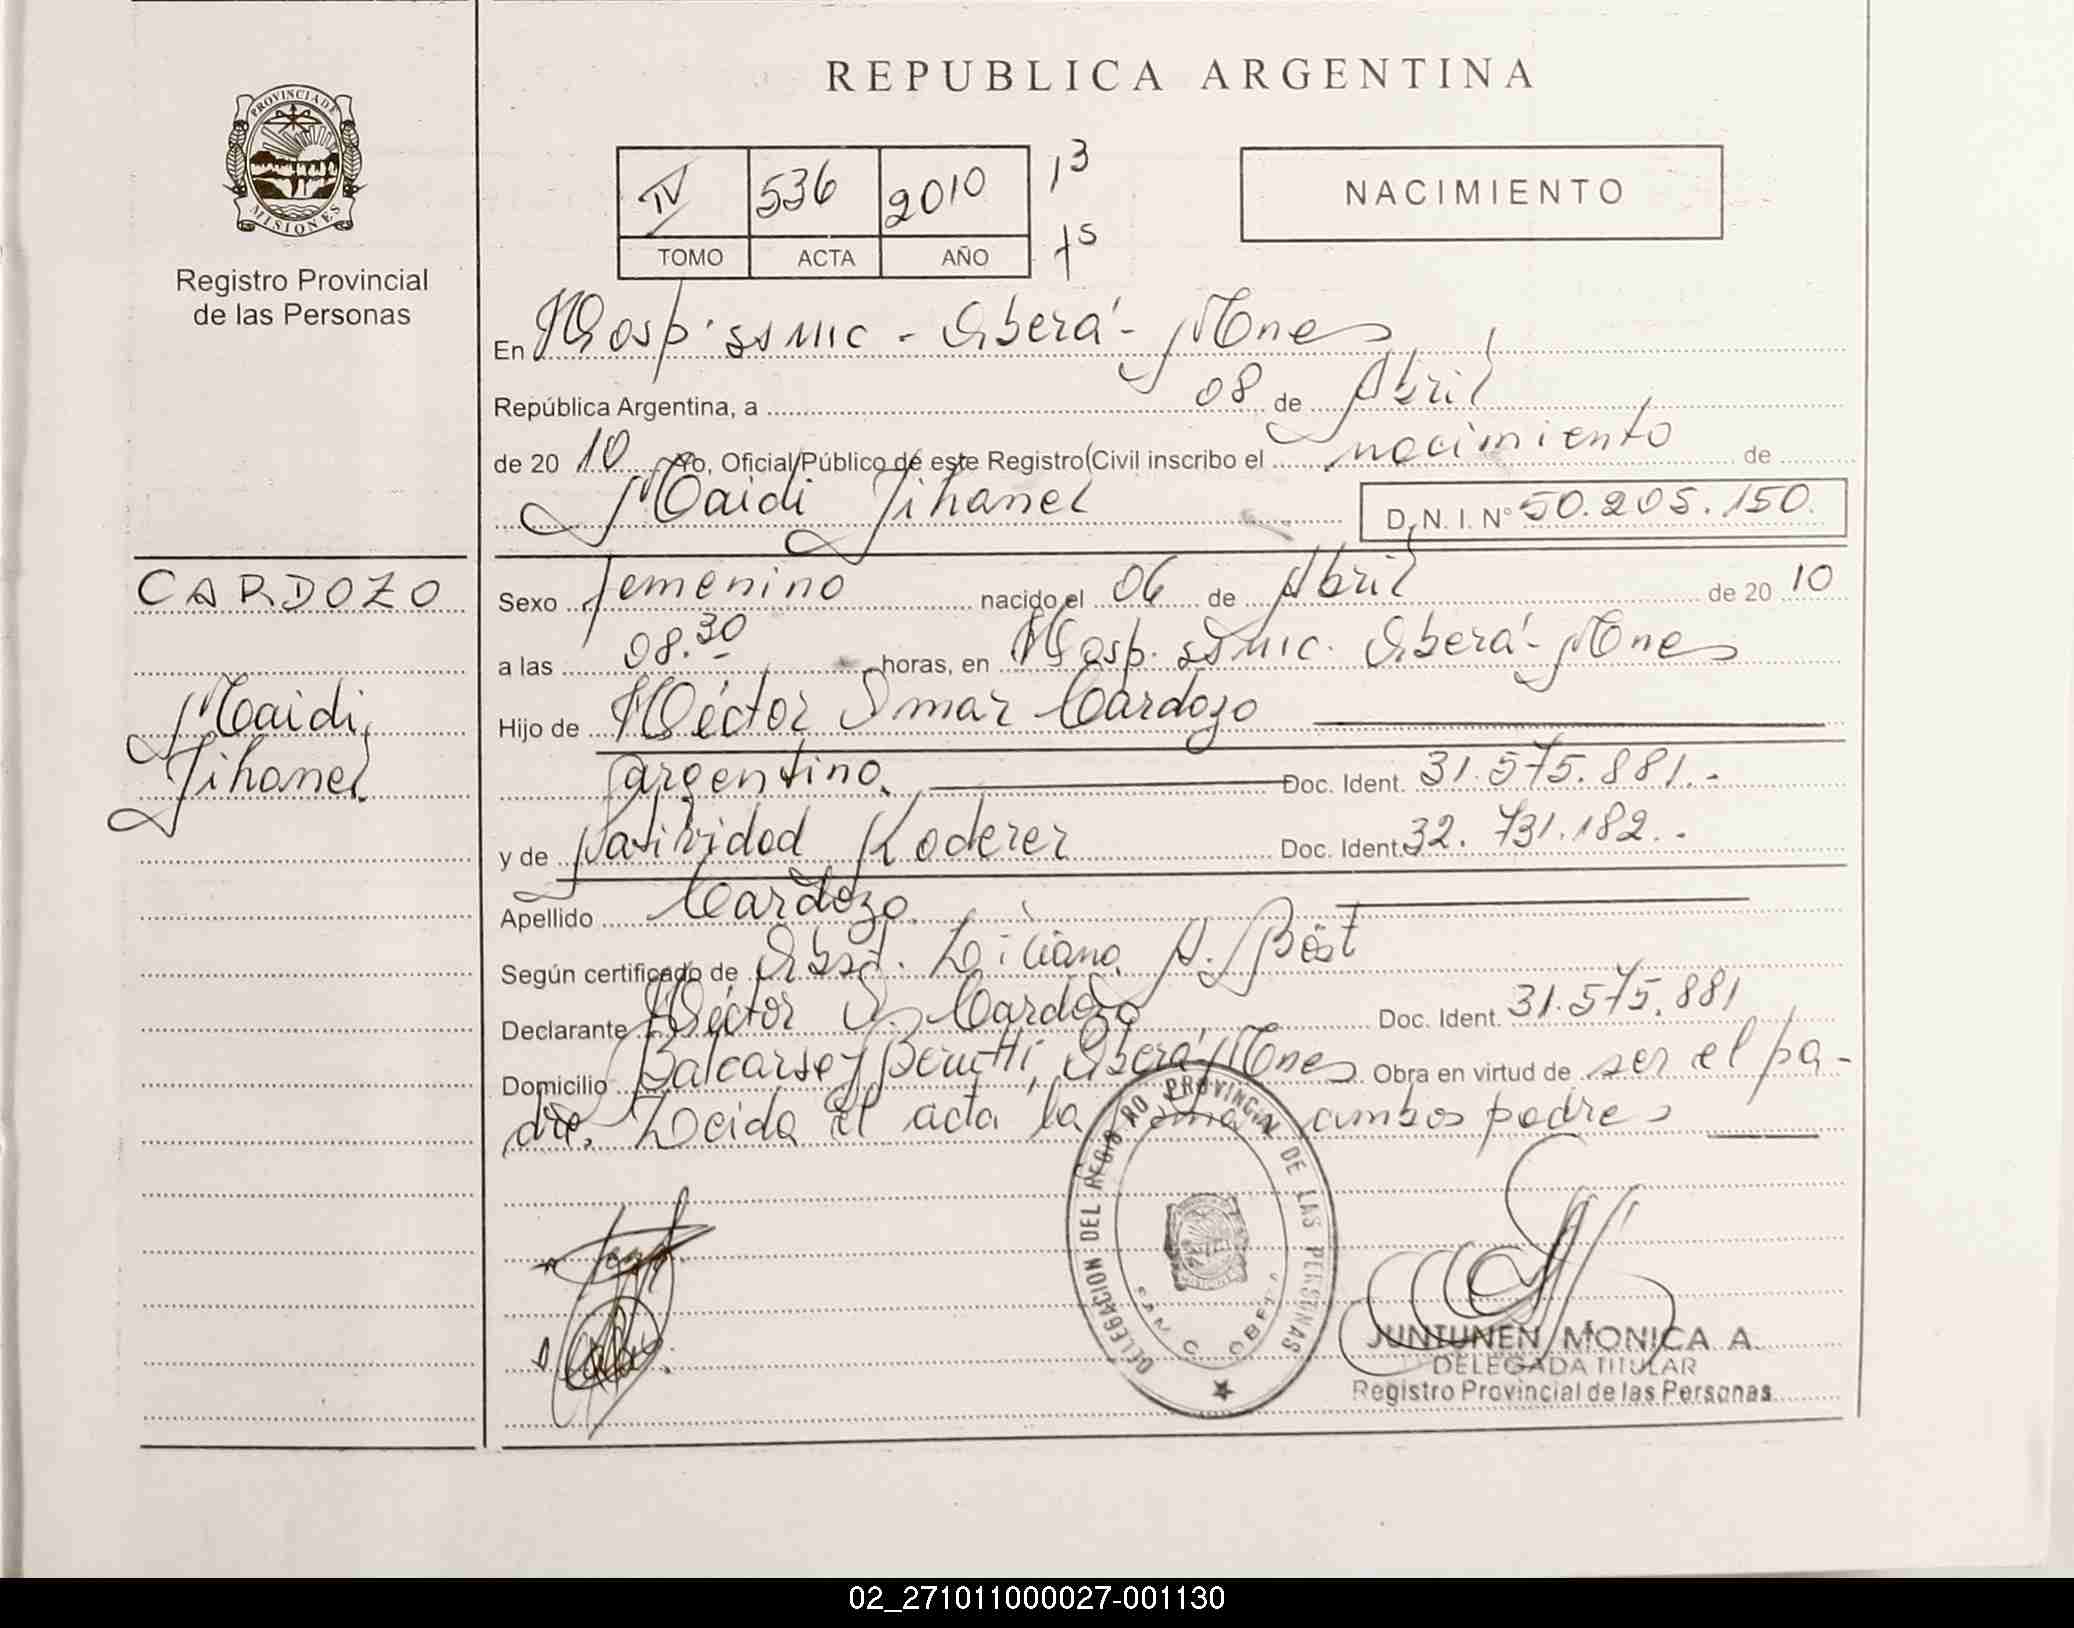 REPUBLICA ARGENTINA
PROVINCIA DE
MISIONES
Registro Provincial
de las Personas
IV 536 2010 13
TOMO ACTA AÑO 15
NACIMIENTO
En Hosp. SAMIC - Oberá - Mnes
República Argentina, a 08 de Abril
de 2010 Yo, Oficial Público de este Registro Civil inscribo el nacimiento de
Maidi Jihanel D. N. I. N° 50.205.150.
CARDOZO
Maidi
Jihanel
Sexo femenino nacido el 06 de Abril de 2010
a las 08.30 horas, en Hosp. SAMIC. Oberá - Mnes
Hijo de Héctor Omar Cardozo
argentino. Doc. Ident. 31.575.881.-
y de Natividad Koderer Doc. Ident. 32.731.182.-
Apellido Cardozo
Según certificado de Obst. Liliana A.
Declarante Héctor O. Cardozo Doc. Ident. 31.575.881
Domicilio y Berutti, Oberá Mnes Obra en virtud de ser el pa-
dre. Leida el acta la firman ambos padres
DELEGACION DEL REGISTRO PROVINCIAL DE LAS PERSONAS
JUNTUNEN MONICA A.
DELEGADA TITULAR
Registro Provincial de las Personas
02_271011000027-001130